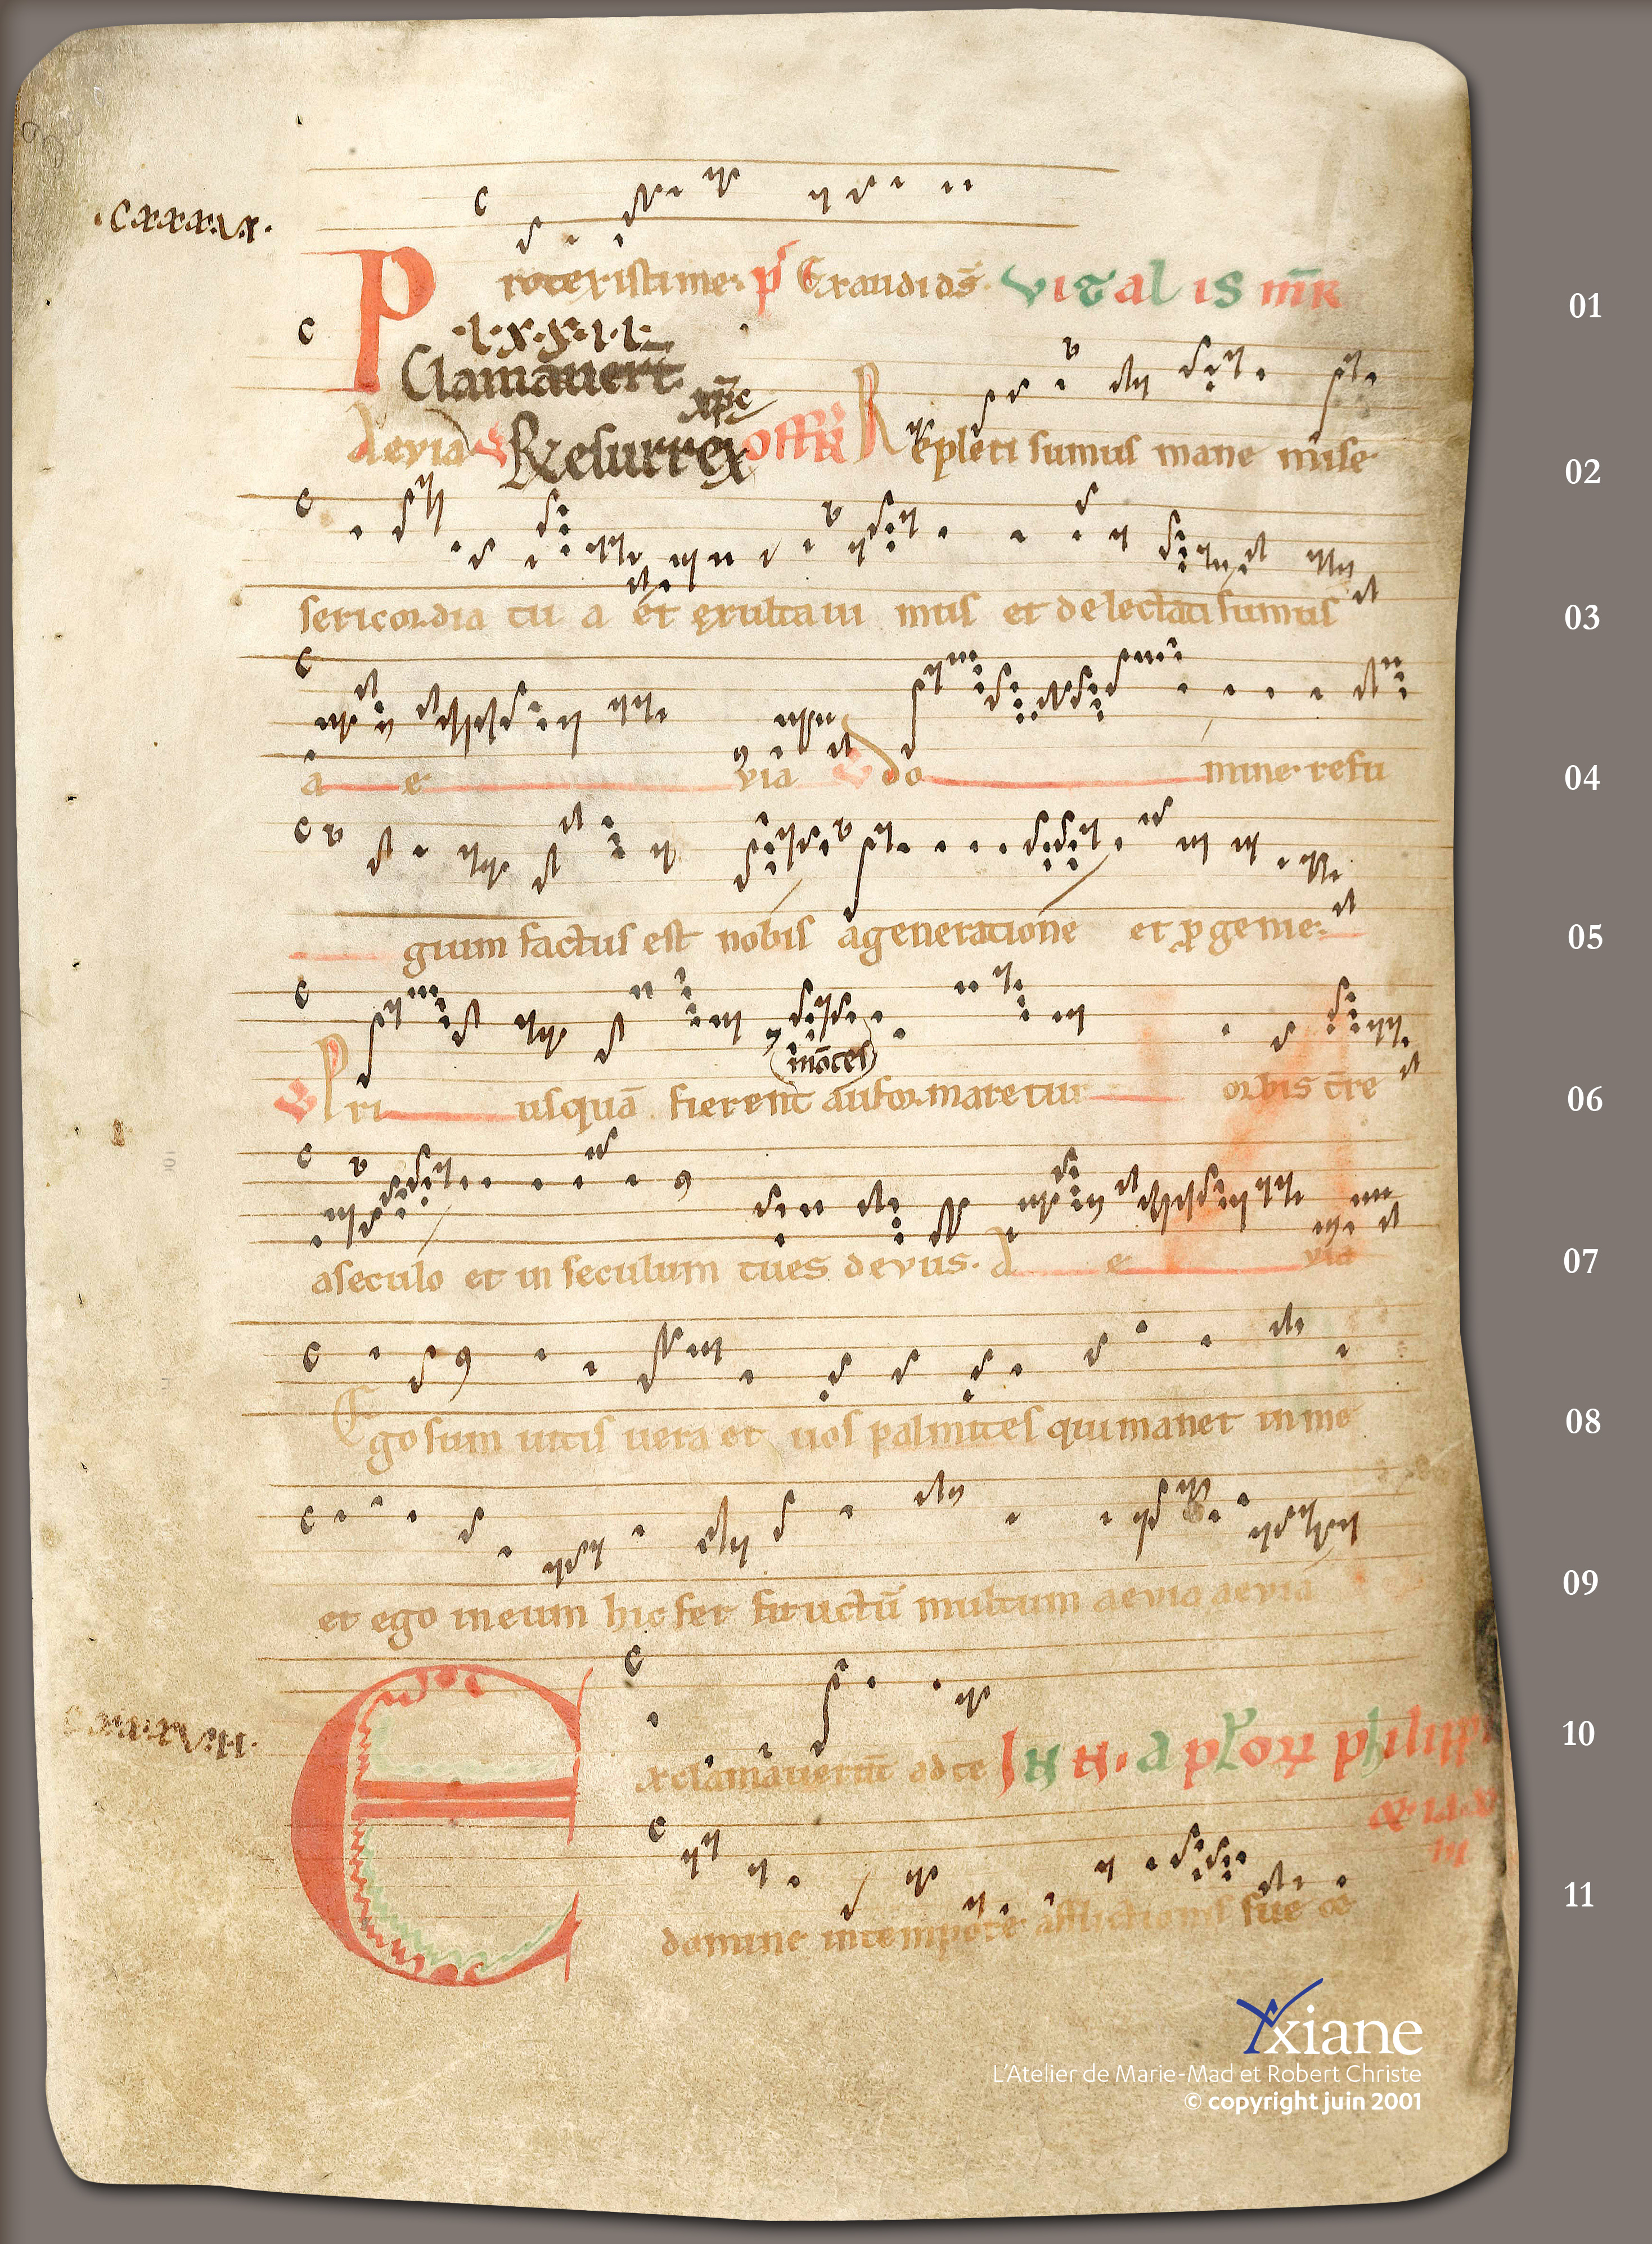 .cxxxxvi.
rotexisti me. ps Exaudi ds. VITALIS MR 01
P
.l.x.x.i.i.
Clamauert
xpc
Aevia Resurrex offR Repleti sumus mane mise 02
sericordia tu a et exultaui mus et delectati sumus 03
a e via do mine refu 04
gium factus est nobis a generatione et p genie. 05
montes
Pri usquā fierent aut formaretur orbis tre 06
a seculo et in seculum tu es devus. A e via 07
Ego sum uitis uera et uos palmites qui manet in me 08
et ego in eum hic fert fructū multum aevia aevia 09
E
xclamauerunt ad te INN. aplor philipp 10
& iac
domine in tempore afflictionis sue & 11
Yxiane
L'Atelier de Marie-Mad et Robert Christe
© copyright juin 2001